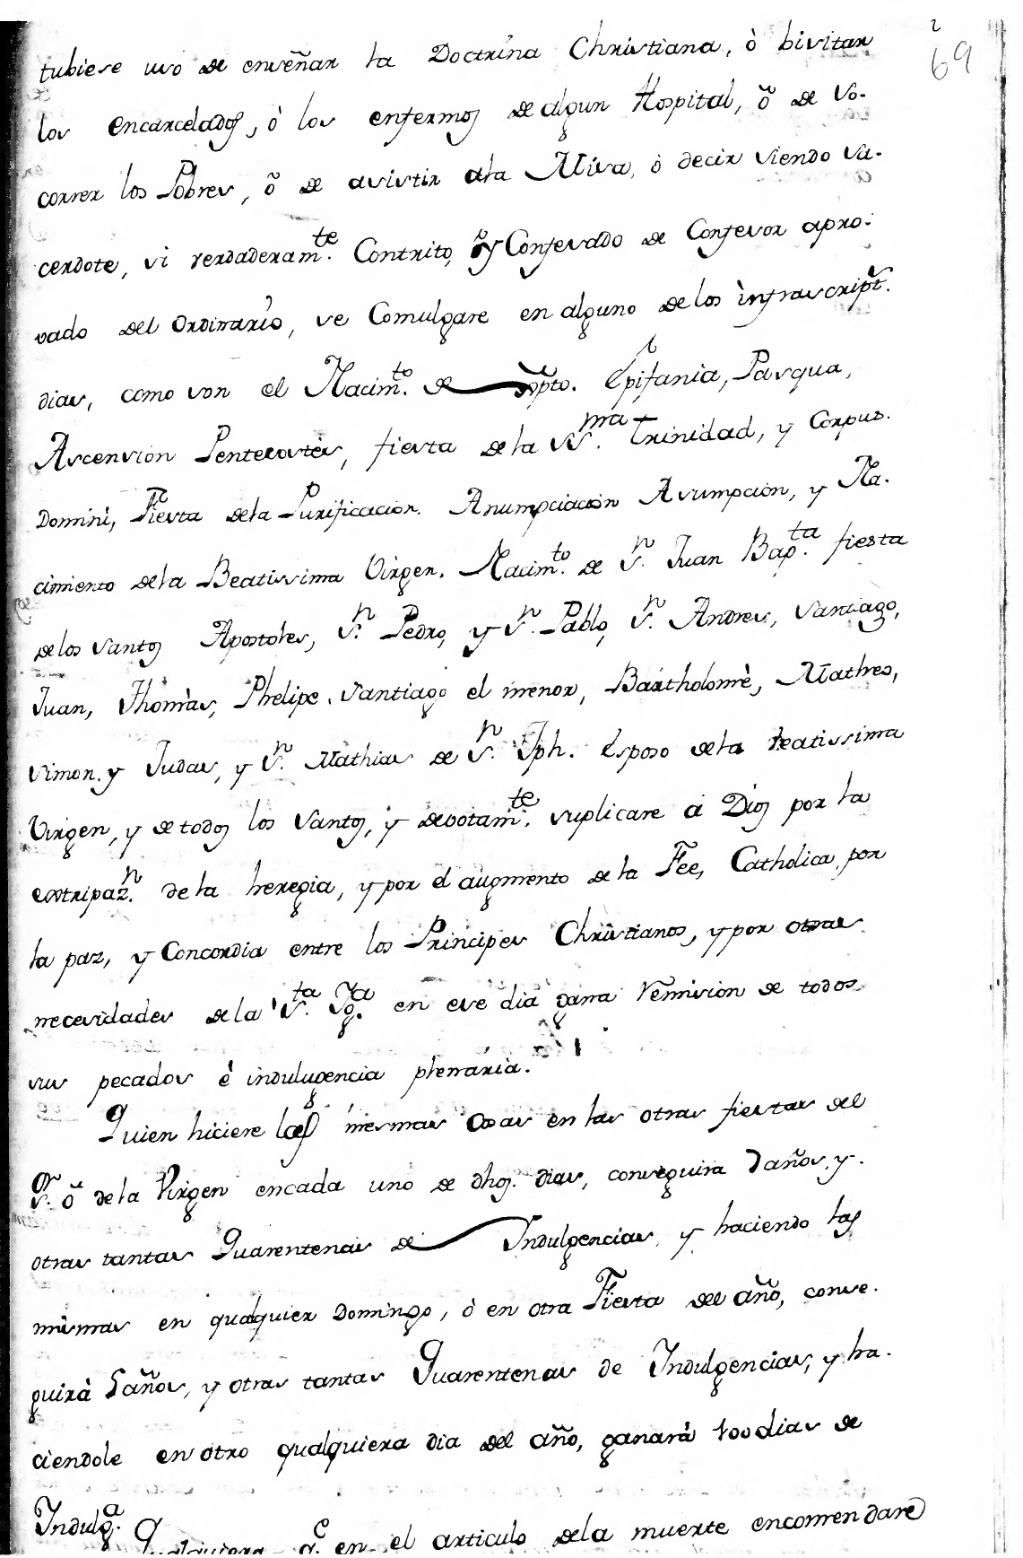 2
69
tubiese uso de enseñar la Doctrina Christiana, ò bisitar
los encarcelados, ò los enfermos de algun Hospital, õ de so-
correr los Pobres, õ de asistir ala Misa, ò decir siendo sa-
cerdote, si verdaderam.te Contrito, y Confesado de Confesor apro-
vado del Ordinario, se Comulgare en alguno de los infrascript.
dias, como son el Nacim.to de Epifania, Pasqua,
Ascension Pentecostès, fiesta de la SS.ma Trinidad, y Corpus.
Domini, Fiesta dela Purificacion. Anumpciacion Asumpcion, y Na-
cimiento dela Beatissima Virgen. Nacim.to de S.n Juan Bap.ta fiesta
delos santos Apostoles, S.n Pedro, y S.n Pablo, S.n Andres, Santiago,
Juan, Thomàs, Phelipe, Santiago el menor, Bartholomè, Matheo,
Simon. y Judas, y S.n Mathias de S.n Jph. Esposo dela beatissima
Virgen, y de todos los Santos, y devotam.te suplicare á Dios por la
extripaz.n de la heregia, y por el augmento de la Fee, Catholica, por
la paz, y Concordia entre los Principes Christianos, y por otras
necesidades dela S.ta Yg.a en ese dia gana remision de todos
sus pecados è indulugencia plenaria.
Quien hiciere las mesmas Cosas en las otras fiestas del
S.or õ de la Virgen encada uno de dhos. dias, conseguira 7 años, y.
otras tantas Quarentenas de Indulgencias, y haciendo las
mismas en qualquier Domingo, ò en otra Fiesta del año, conse-
guirà 5 años, y otras tantas Quarentenas de Indulgencias, y ha-
ciendole en otro qualquiera dia del año, ganarà 100 dias de
Indulg.a Qualquiera q.e en el articulo dela muerte encomendare